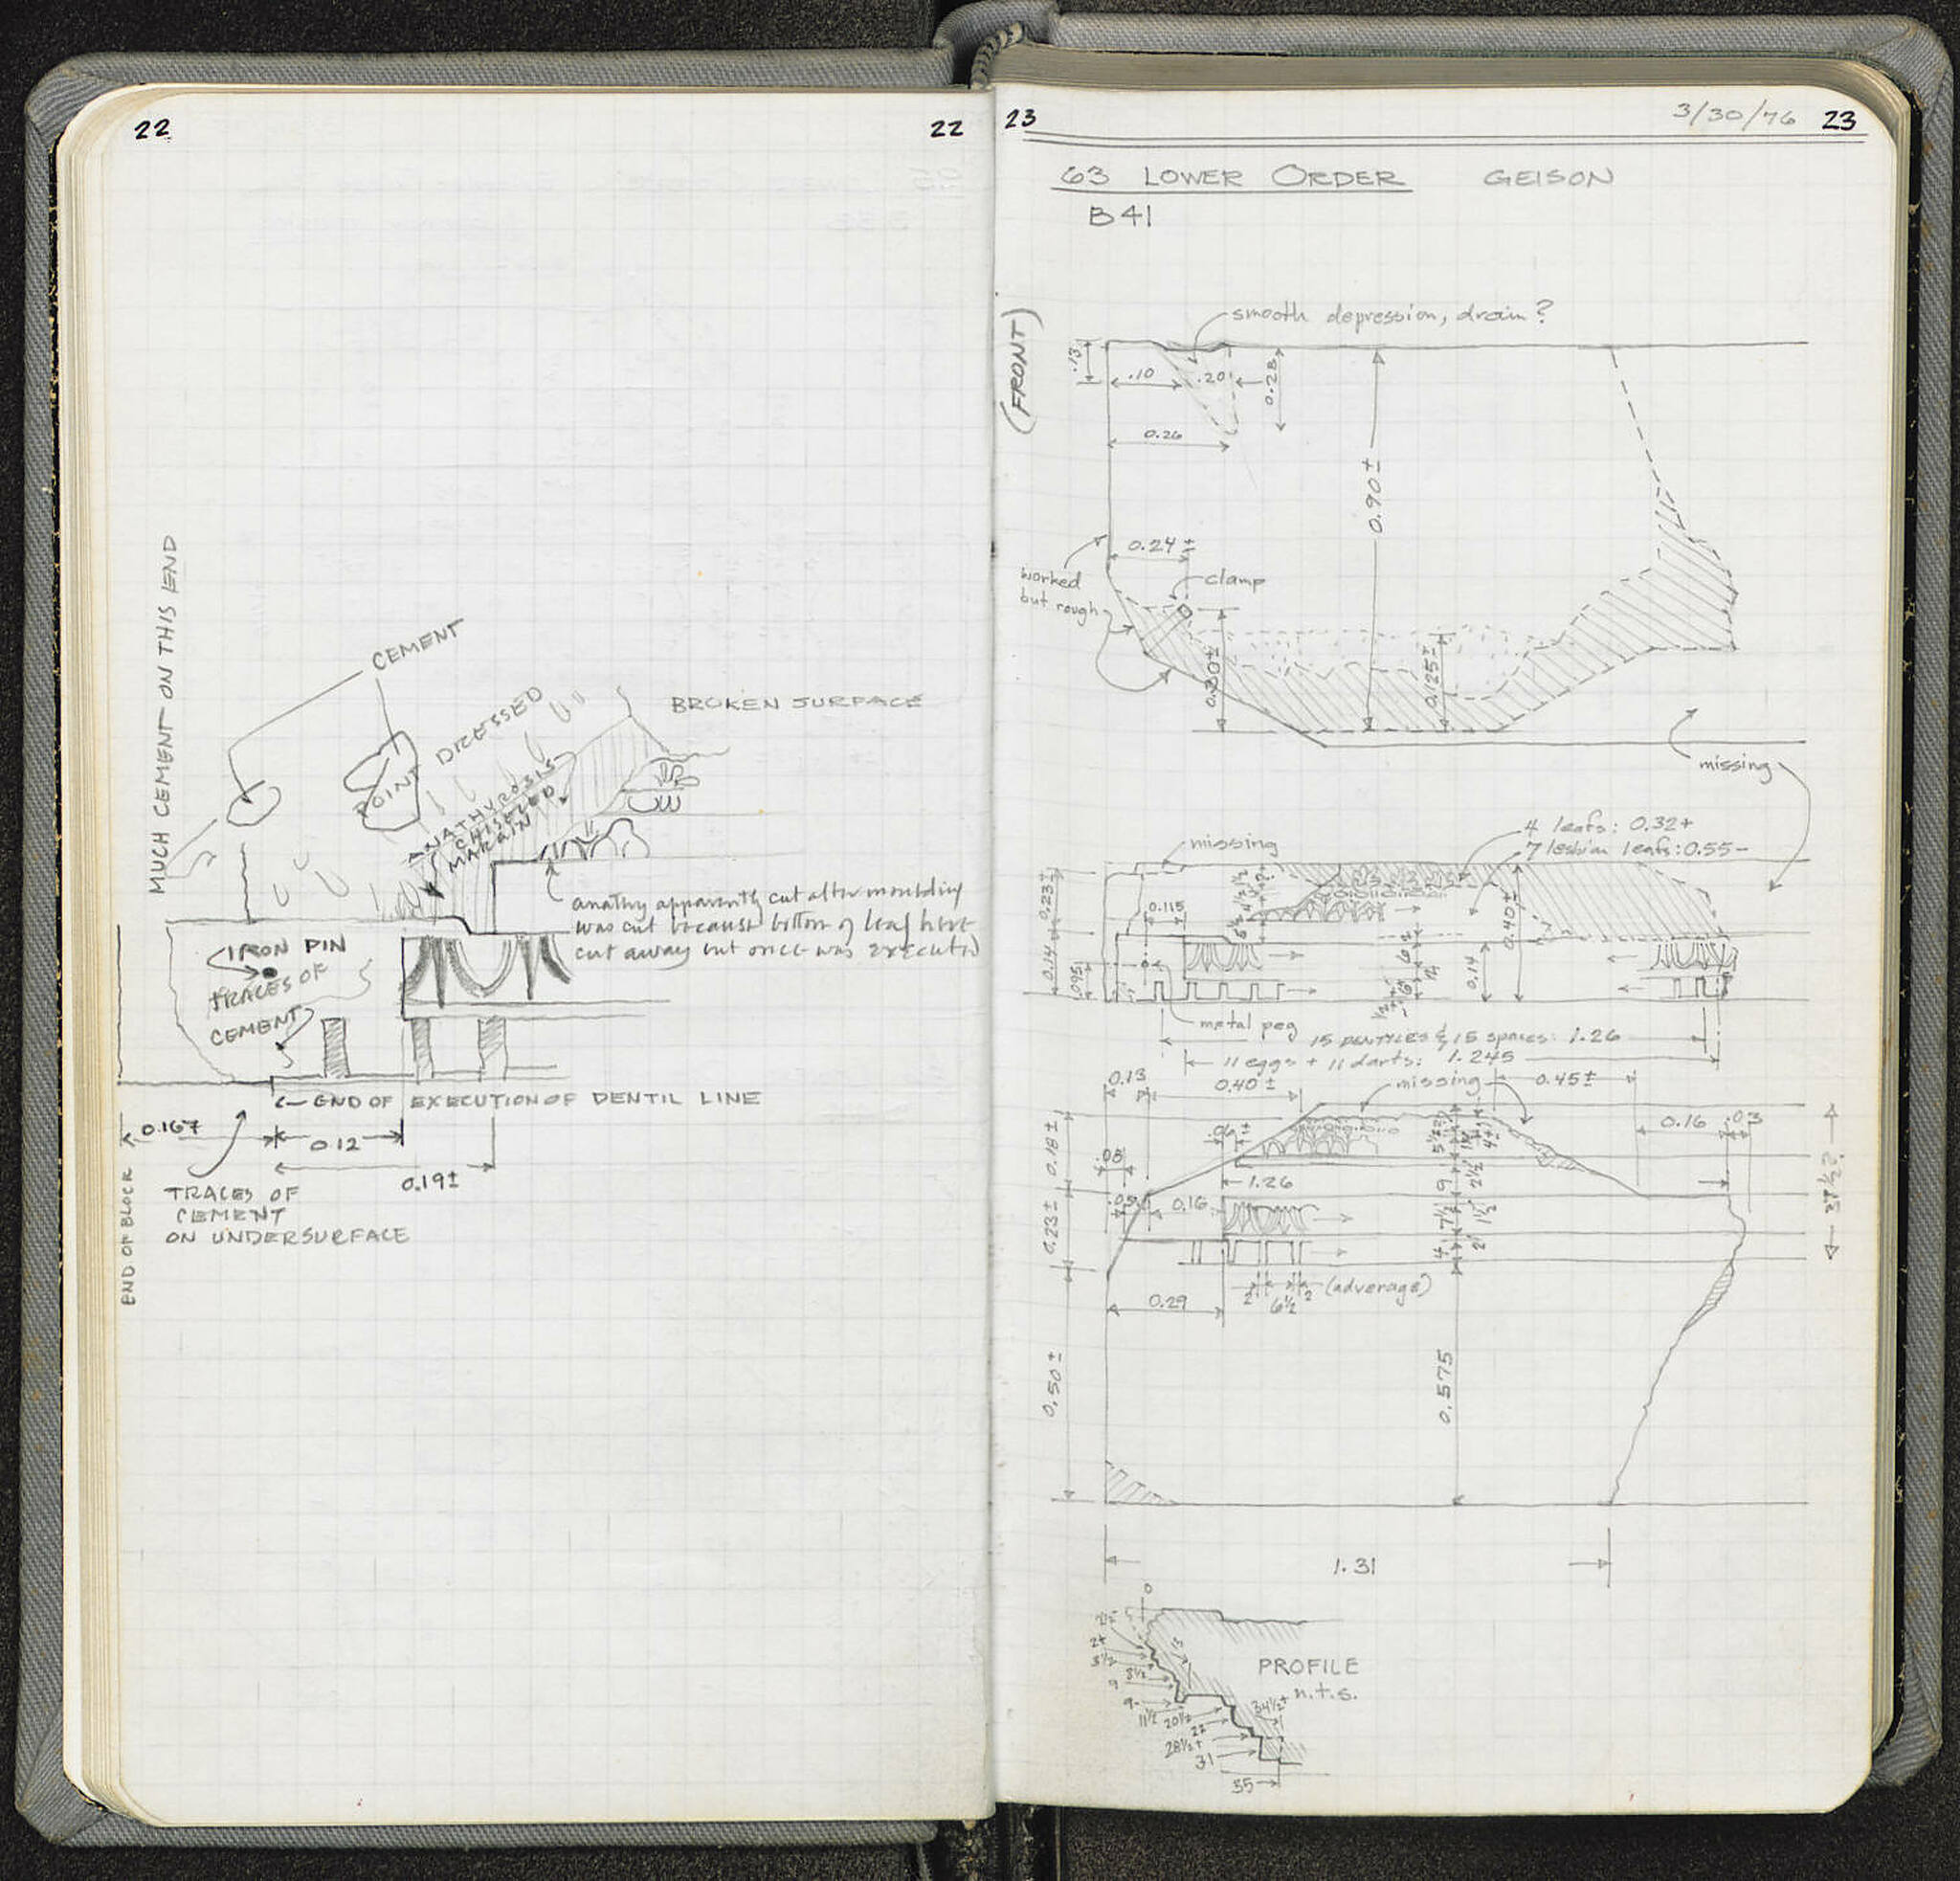 22
22
MUCH CEMENT ON THIS END
CEMENT
POINT DRESSED
BROKEN SURFACE
ANATHYROSIS
CHISELED
MARGIN
anathy apparently cut after moulding
was cut because bottom of leaf here
cut away but once was executed
IRON PIN
TRACES OF
CEMENT
END OF EXECUTION OF DENTIL LINE
0.167
0.12
0.19±
TRACES OF
CEMENT
ON UNDERSURFACE
END OF BLOCK
23
3/30/76
23
63 LOWER ORDER GEISON
B41
(FRONT)
smooth depression, drain?
.13
.10
.20
0.28
0.26
0.90±
0.24±
clamp
worked
but rough
0.30±
0.125±
missing
missing
4 leafs: 0.32+
7 lesbian leafs: 0.55-
0.23±
0.115
0.40±
0.14
.095
0.14
metal peg
15 DENTILES & 15 spaces: 1.26
11 eggs + 11 darts: 1.245
0.13
0.40±
missing
0.45±
0.16
.03
0.18±
.08
1.26
.05
0.16
0.23±
37½
2 6½ 2 (adverage)
0.29
0.50±
0.575
1.31
0
2+
3½
3½
9
9-
11½
20½
22
28½+
31
34½+
35
PROFILE
n.t.s.